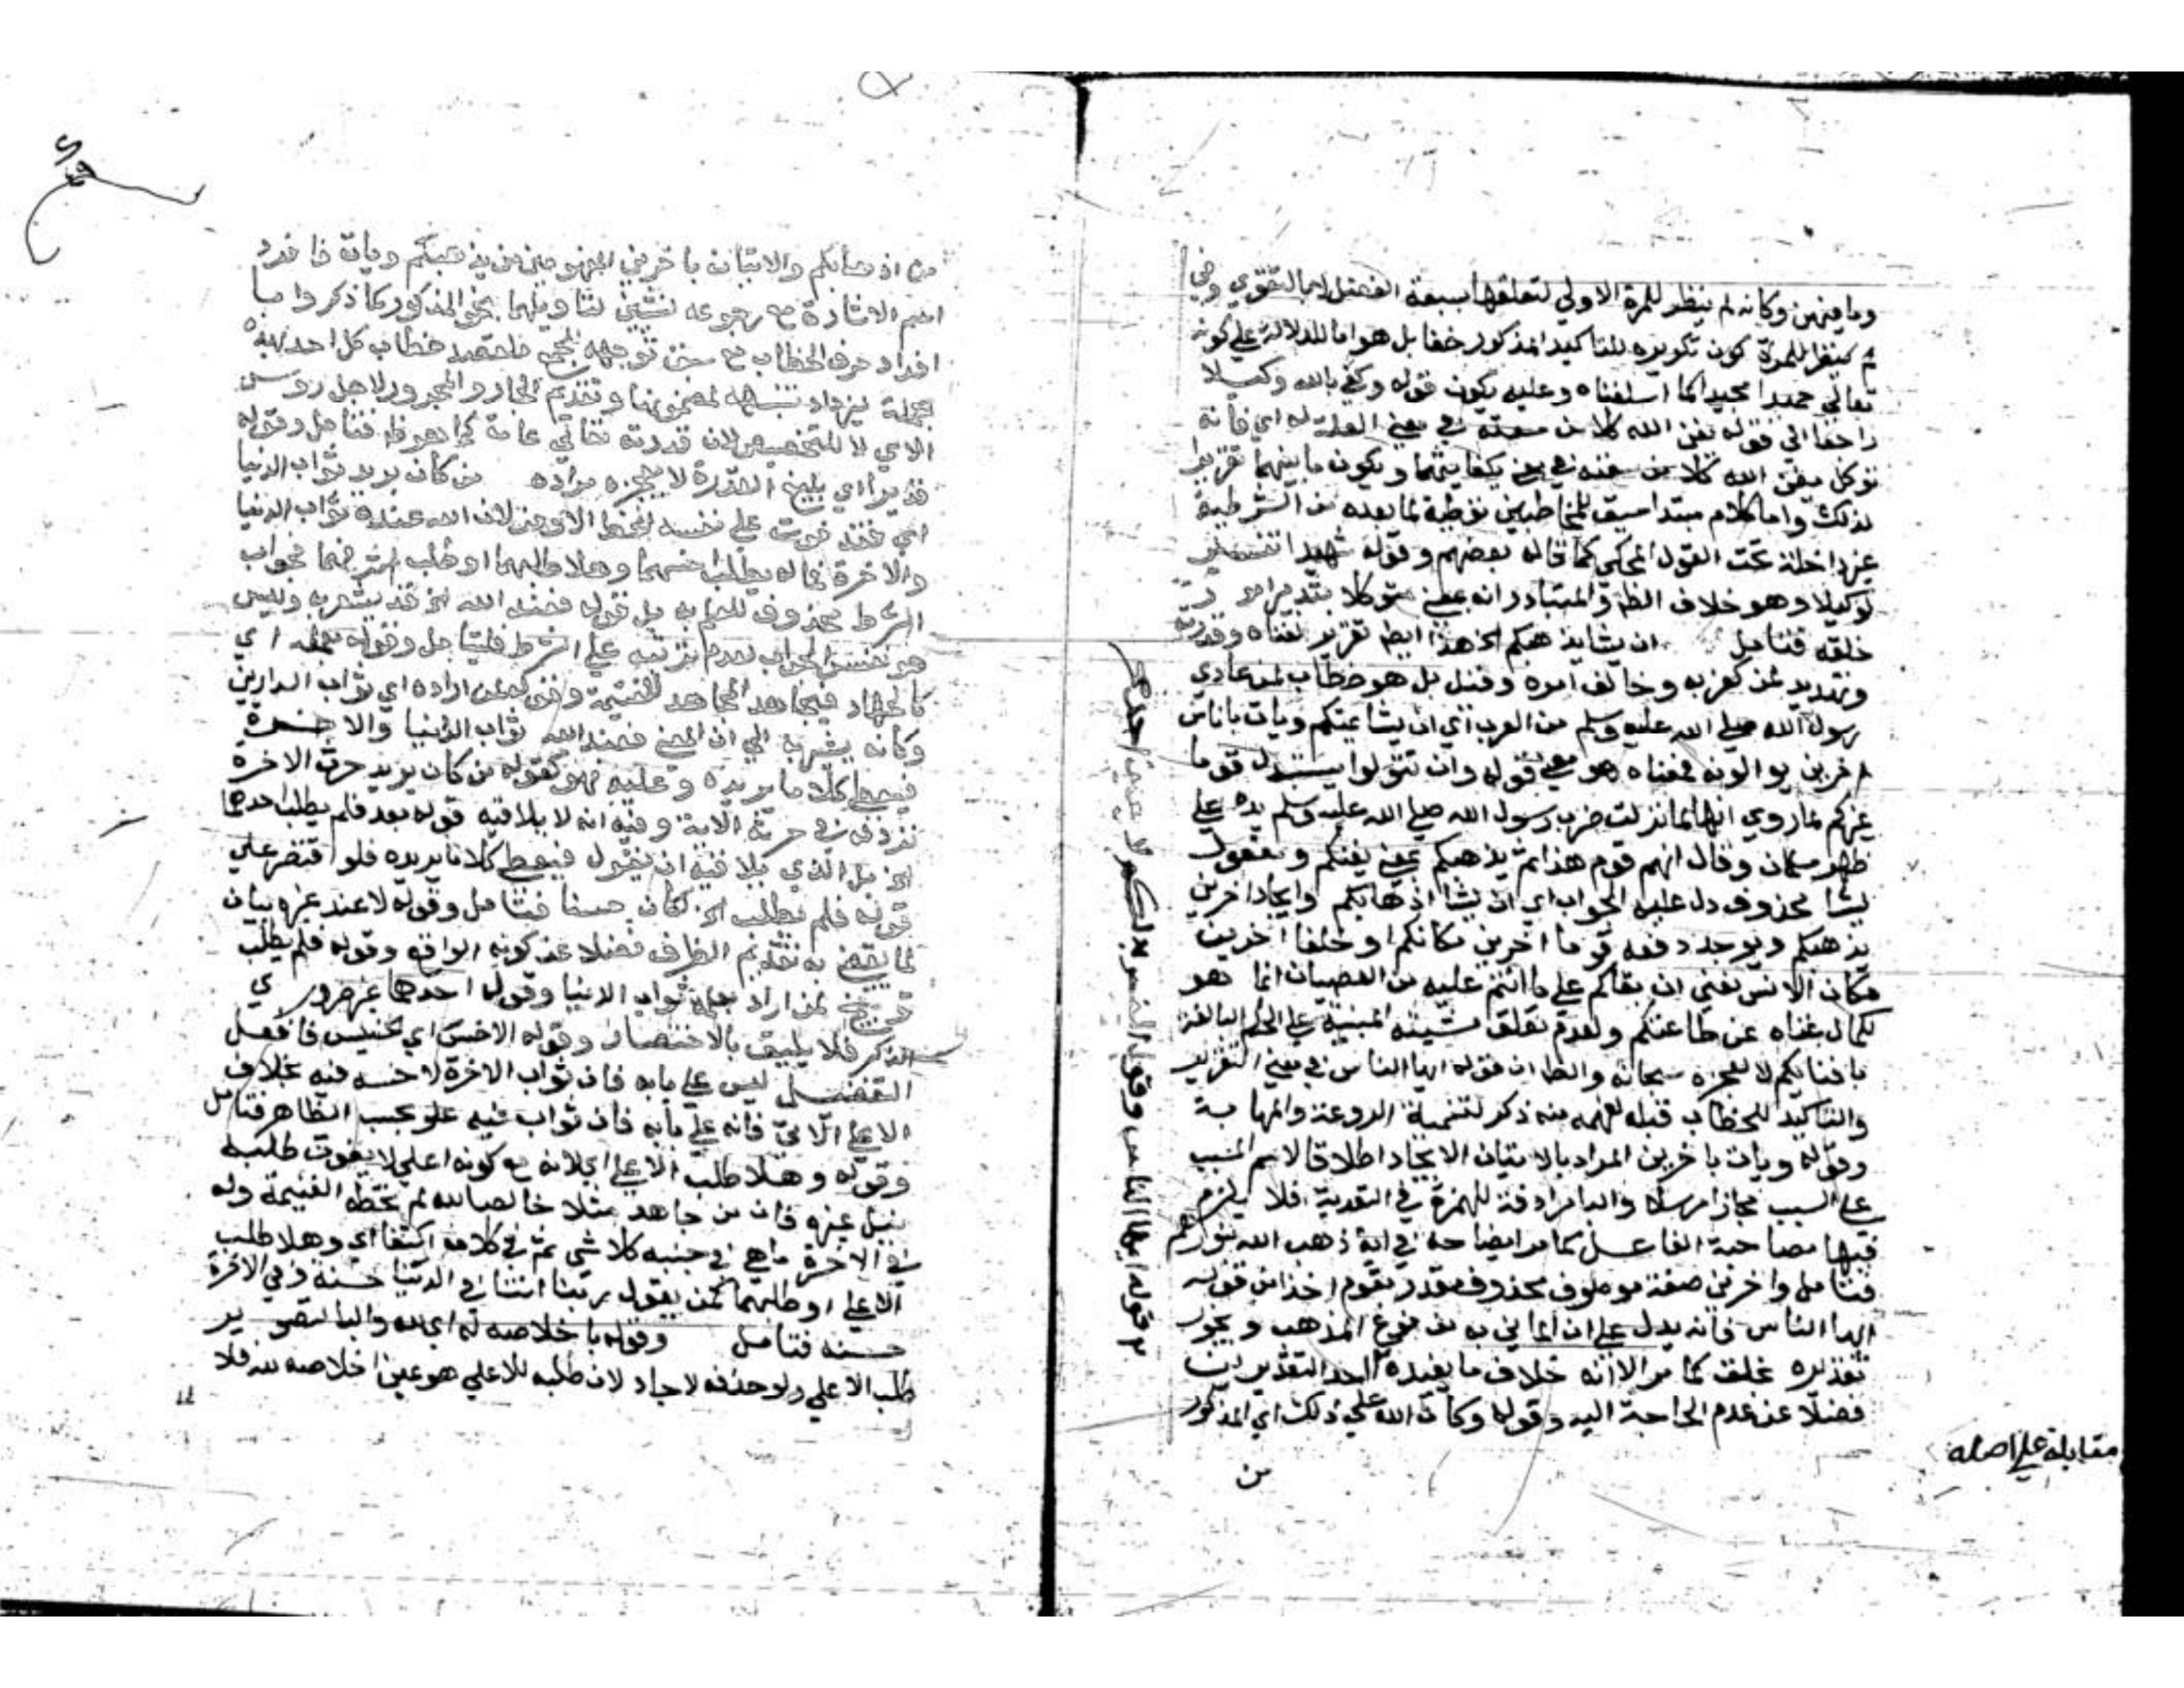 وما فيهن وكانه لم ينظر للمرة الاولي لتعلقها بسبعة الفصل لها بالتقوي وفي
ثم كينظر للمرة كون تكريره للتاكيد المذكور خفا بل هو اما للدلالة علي كونه
تعالي حميدا مجيدا كما اسلفناه وعليه يكون قوله وكفي بالله وكيلا
راجعا الي قوله يغن الله كلا من سعته في معني العلة له اي فانه
توكل بيغن الله كلا من سعته في يكفايتهما ويكون ما بينهما تقريرا
لذلك واما كلام مبتدا سيق للمخاطبين توطية لما بعده من الشرطية
غير داخلة تحت القول المحكي كما قاله بعضهم وقوله شهيدا تفسير
لوكيلا وهو خلاف الظ والمتبادر انه بمعني متوكلا بتدبير امر
خلقه فتامل ان يشا يذهبكم الخ هذا ايضا تقرير لغناه وقدرته
وتهديد لمن كفر به وخالف امره وقيل بل هو خطاب لمن عادي
رسول الله صلي الله عليه وسلم من العرب اي ان يشا يمتكم ويات باناس
اخرين يوالونه فمعناه هو معني قوله وان تتولوا يستبدل قوما
غيركم لما روي انها لما نزلت ضرب رسول الله صلي الله عليه وسلم يده علي
ظهر سلمان وقال انهم قوم هذا ثم يذهبكم بمعني يفنكم ومفعول
يشا محذوف دل عليه الجواب اي ان يشا اذهابكم وايجاد اخرين
يذهبكم ويوجد دفعه قوما اخرين مكانكم او خلقا اخرين
مكان الانس يعني ان بقاكم علي ما انتم عليه من العصيان انما هو
لكمال غناه عن طاعتكم ولعدم تعلق مشيئته المبنية علي الحكم البالغة
بافنايكم لا لعجزه سبحانه والظ ان قوله ايها الناس في معني التقرير
والتاكيد للخطاب قبله لفهمه منه ذكر لتنمية الروعة والمهابة
وقوله ويات باخرين المراد بالاتيان الايجاد اطلاقا لاسم المسبب
علي السبب مجازا مرسلا والبا مرادفة للهمزة في التعدية فلا يلزم
فيها مصاحبة الفاعل كما مر ايضاحه في اية ذهب الله بنورهم
فتامل واخرين صفة موصوف محذوف مقدر بقوم اخذا من قوله
ايها الناس فانه يدل علي ان الماتي به من نوع المذهب ويجوز
تقديره بخلق كما مر الا انه خلاف ما يفيده احد التقديرين
فضلا عن عدم الحاجة اليه وقوله وكان الله علي ذلك اي المذكور
من
مقابلة علي اصله
من اذهابكم والاتيان باخرين المفهومين من يذهبكم ويات فافرد
اسم الاشارة مع رجوعه لشيئين لتاويلهما بنحو المذكور كما ذكروا ما
افراد حرف الخطاب مع حق توجهه للجمع فلقصد خطاب كل احد بهذه
الجملة ليزداد تنبيهه لمضمونها وتقديم الجار والمجرور لاجل روس
الاي لا للتخصيص لان قدرته تعالي عامة كما هو ظ فتامل وقوله
قديرا اي بليغ القدرة لا يعجزه مراده من كان يريد ثواب الدنيا
اي فقد فوت علي نفسه الحظ الاوفر لان الله عنده ثواب الدنيا
والاخرة فما له يطلب اخسهما وهلا طلبهما او طلب اشرفهما فجواب
الشرط محذوف للعلم به بل قوله فعند الله الخ قد يشعر به وليس
هو نفس الجواب لعدم ترتبه علي الشرط فليتامل وقوله بعمله اي
كالجهاد فيجاهد المجاهد للغنيمة وقوله لمن اراده اي ثواب الدارين
وكانه يشير به الي ان المعني فعند الله ثواب الدنيا والاخرة
فيعطي كلا ما يريده وعليه فهو كقوله من كان يريد حرث الاخرة
نزد له في حرثه الاية وفيه انه لا يلاقيه قوله بعد فلم يطلب احدهما
الخ بل الذي يلاقيه ان يقول فيعطي كلا ما يريده فلو اقتصر علي
قوله فلم يطلب الخ لكان حسنا فتامل وقوله لا عند غيره بيان
لما يقضي به تقديم الظرف فضلا عن كونه الواقع وقوله فلم يطلب
توبيخ لمن اراد بعمله ثواب الدنيا وقوله احدهما غير ضروري
الذكر فلا يليق بالاختصار وقوله الاخس اي الخسيس فافعل
التفضيل ليس علي بابه فان ثواب الاخرة لا خسه فيه بخلاف
الاعلي الاتي فانه علي بابه فان ثواب فيه علو بحسب الظاهر فتامل
وقوله وهلا طلب الاعلي اي لانه مع كونه اعلي لا يفوت طلبه
نيل غيره فان من جاهد مثلا خالصا لله لم تخطه الغنيمة وله
في الاخرة ما هي في جنبه كلا شي ثم في كلامه اكتفا اي وهلا طلب
الاعلي او طلبهما كمن يقول ربنا اتنا في الدنيا حسنة وفي الاخرة
حسنه فتامل وقوله باخلاصه له اي لله والبا لتصوير
طلب الاعلي ولو حذفه لاجاد لان طلبه للاعلي هو عين اخلاصه لله فلا